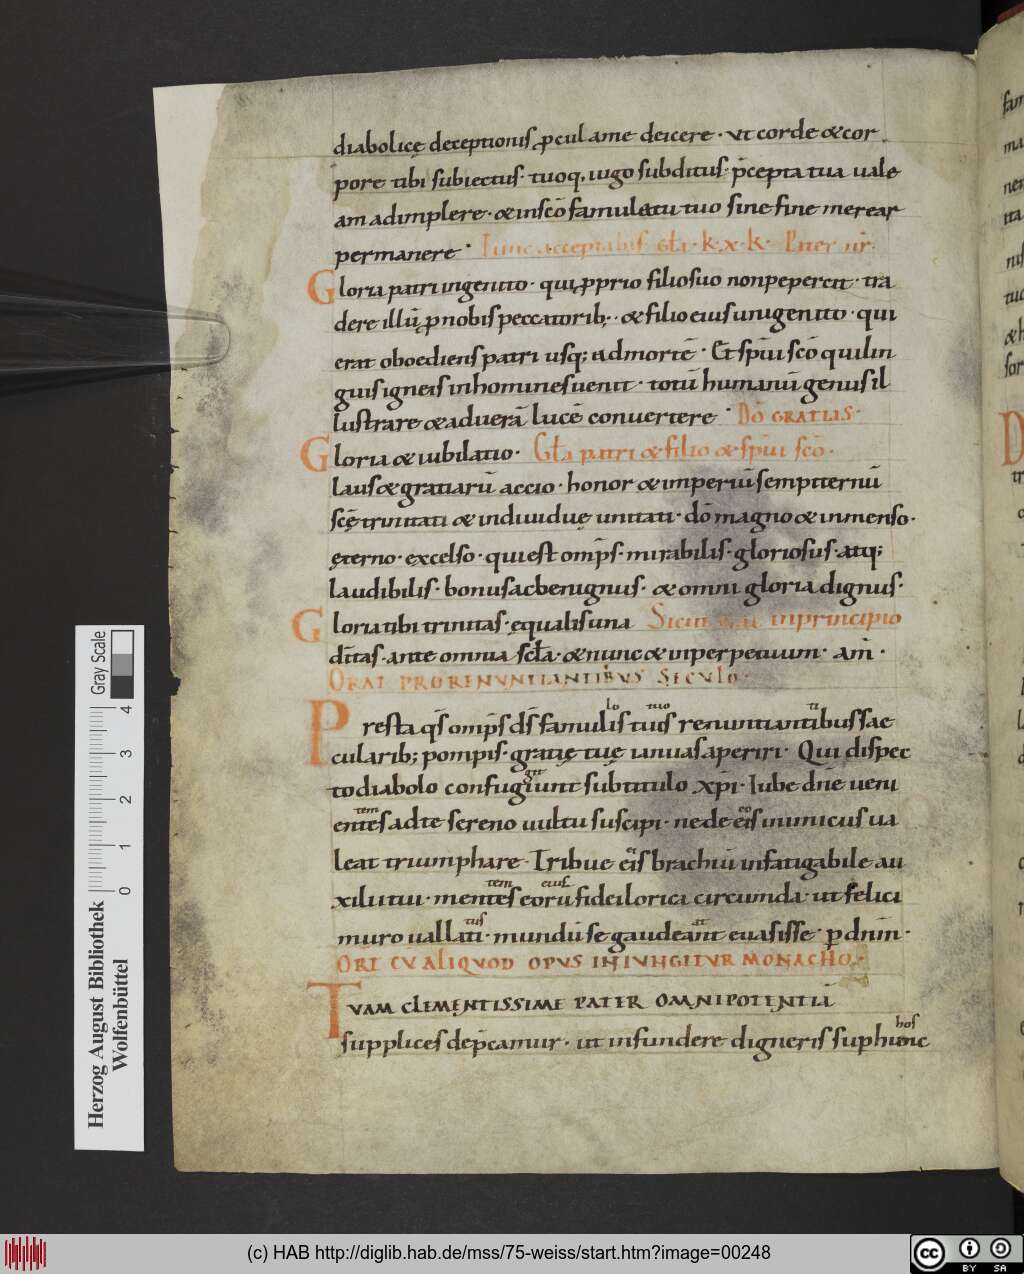 diabolicę deceptionis p̱cul ame deicere · ut corde & cor
pore tibi subiectus · tuoq, iugo subditus · p̄cepta tua uale
am adimplere · & insc̄o famulatu tuo sine fine merear
permanere · Tunc acceptabis gl̄a · k · x · k · Pater nr̄ ·
Gloria patri ingenito · qui p̱prio filio suo non pepercit · tra
dere illū p̱ nobis peccatorib; · & filio eius unigenito · qui
erat oboediens patri usq; ad mortē · Et sp̄ui sc̄o qui lin
guis igneis in homines uenit · totū humanū genus il
lustrare & ad uerā lucē conuertere · Dō GRATIAS ·
Gloria & iubilatio · Gl̄a patri & filio & sp̄ui sc̄o ·
Laus & gratiarū accio · honor & imperiū sempiternū
sc̄ę trinitati & indiuiduę unitati · dō magno & inmenso ·
ęterno · excelso · qui est omp̄s · mirabilis · gloriosus · atq;
laudibilis · bonus ac benignus · & omni gloria dignus ·
Gloria tibi trinitas · ęqualis una Sicut erat in principio
d̄itas · ante omnia sc̄la · & nunc & in perpetuum · am̄ ·
ORAT PRO RENUNTIANTIBVS SECVLO ·
lo tuo ti
Presta qs̄ omp̄s ds̄ famulis tuis renuntiantibus sae
cularib; pompis · gratię tuę ianuas aperiri · Qui dispec
git
to diabolo confugiunt sub titulo xp̄i · Iube dn̄e ueni
tem eo
entes ad te sereno uultu suscipi · ne de eis inimicus ua
leat triumphare · Tribue eis brachiū infatigabile au
tem eius
xilii tui · mentes eorū fidei lorica circumda · ut felici
tus at
muro uallati · mundū se gaudeant euasisse · p̱ dnm̄ ·
ORT CV ALIQVOD OPVS INIVNGITVR MONACHO ·
TVAM CLEMENTISSIME PATER OMNIPOTENTIĀ
hos
supplices dep̄camur · ut infundere digneris sup hunc
Herzog August Bibliothek
Wolfenbüttel
Gray Scale
0 1 2 3 4
(c) HAB http://diglib.hab.de/mss/75-weiss/start.htm?image=00248
cc BY SA